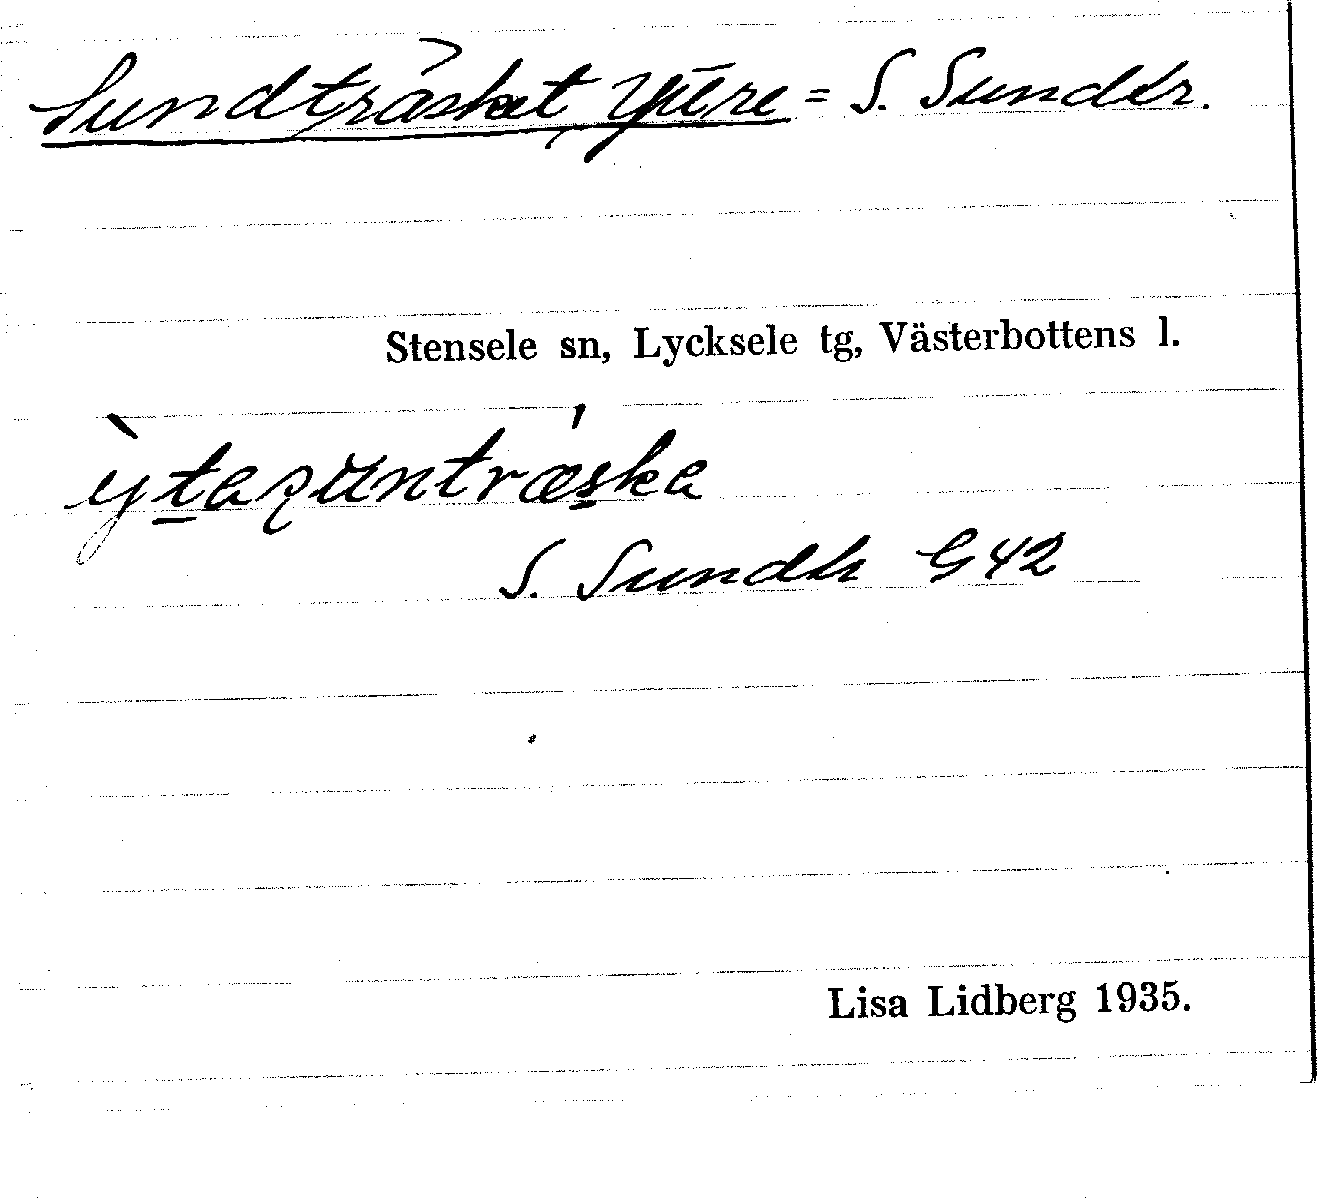 Sundträsket, Yttre = S. Sundtr.
Stensele sn, Lycksele tg, Västerbottens l.
S. Sundtr G 42
Lisa Lidberg 1935.